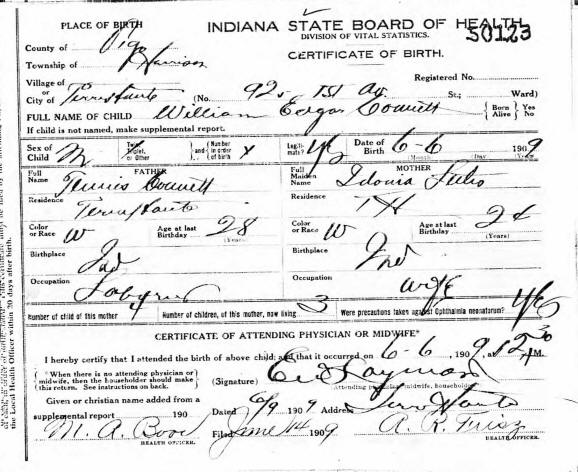 PLACE OF BIRTH
INDIANA STATE BOARD OF HEALTH
50123
DIVISION OF VITAL STATISTICS.
CERTIFICATE OF BIRTH.
County of Vigo
Township of Harrison
Registered No.
Village of
or
City of Terre Haute (No. 925 1st Av St.; Ward)
FULL NAME OF CHILD William Connett { Born Alive } { Yes No
If child is not named, make supplemental report.
Sex of Child M Twin, Triplet, or Other } and { Number in order of birth X Legitimate? Yes Date of Birth 6-6 1909
(Month) (Day) (Year)
FATHER
MOTHER
Full Name Tennis Connett
Full Maiden Name Idonia
Residence Terre Haute
Residence T H
Color or Race W Age at last Birthday 28 (Years)
Color or Race W Age at last Birthday 24 (Years)
Birthplace Ind
Birthplace Ind
Occupation
Occupation wife
Number of child of this mother 4 Number of children, of this mother, now living 3 Were precautions taken against Ophthalmia neonatorum? Yes
CERTIFICATE OF ATTENDING PHYSICIAN OR MIDWIFE*
I hereby certify that I attended the birth of above child; and that it occurred on 6-6, 1909, at 12 30 M.
{ *When there is no attending physician or midwife, then the householder should make this return. See instructions on back. }
(Signature)
Attending physician, midwife, householder
Given or christian name added from a
supplemental report 190
Dated 6/9 1909 Address Terre Haute
M. A. Boor
HEALTH OFFICER.
Filed June 14 1909
A. R. Trisz
HEALTH OFFICER.
the Local Health Officer within 30 days after birth.